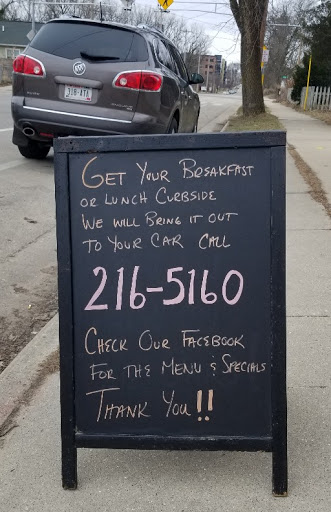 GET YOUR BREAKFAST
OR LUNCH CURBSIDE
WE WILL BRING IT OUT
TO YOUR CAR CALL
216-5160
CHECK OUR FACEBOOK
FOR THE MENU & SPECIALS
THANK YOU!!